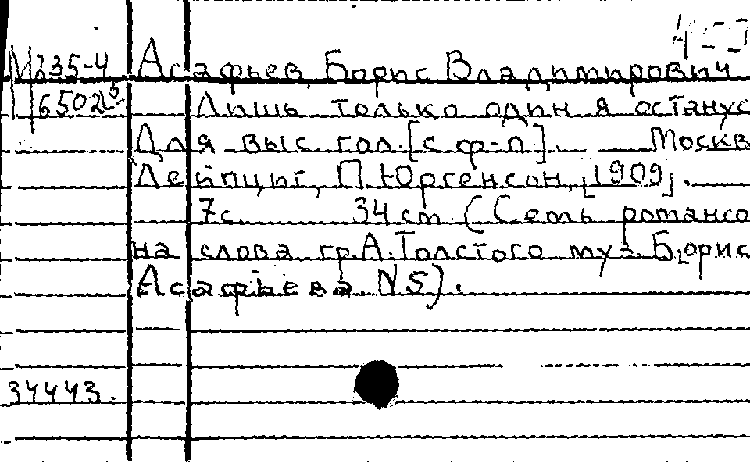 М235-4 Асафьев, Борис Владимирович
Лишь только один я останус
Для выс. гол. [с ф-п]. Москв
Лейпциг, П. Юргенсон, [1909].
7с. 34 см (Семь романсо
на слова гр. А. Толстого муз. Б[орис
Асафьева N5).
34443.